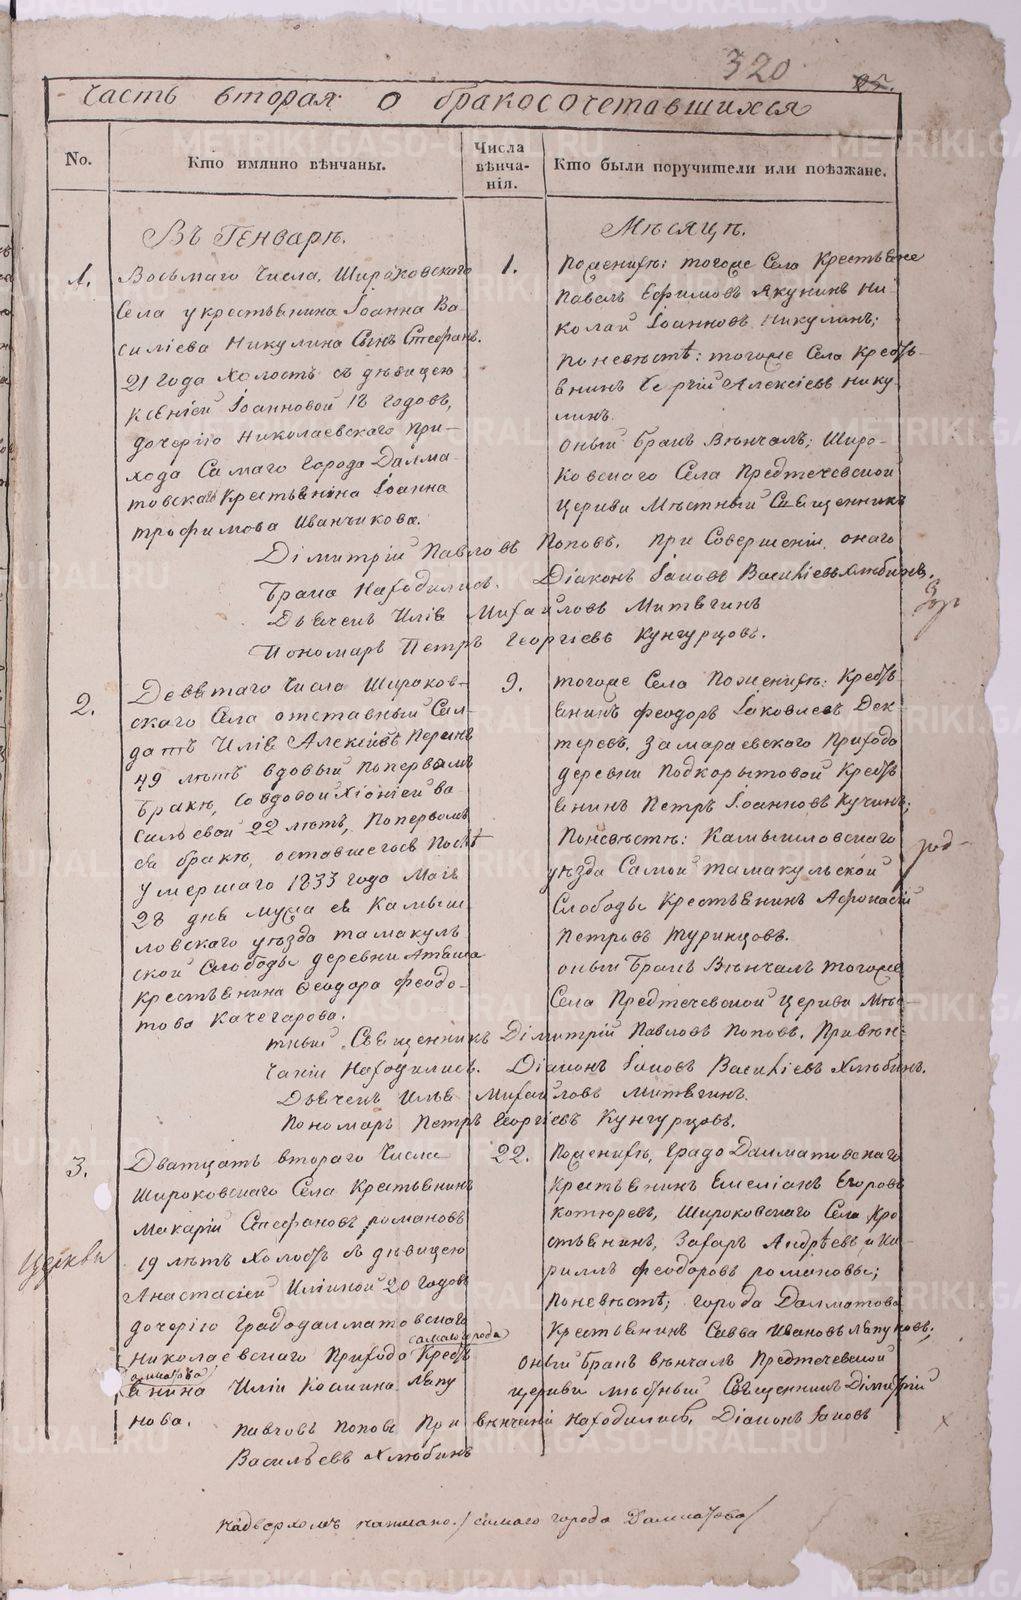 320
Часть вторая о бракосочетавшихся
No.
Кто имянно вѣнчаны.
Числа вѣнча-нія.
Кто были поручители или поѣзжане.
Въ Генварѣ.
Мѣсяцѣ.
1.
Восьмаго Числа, Широковскаго
Села у крестьянина Іоанна Ва-
силіева Никулина Сынъ Стефанъ.
21 года холостъ съ дѣвицею
Ксеніей Іоанновой 18 годовъ,
дочерію Николаевскаго При-
хода Самаго Города Далма-
товскаго Крестьянина Іоанна
Трофимова Иванчикова.
1.
Поженихѣ: тогоже Села Крестьяне
Павелъ Ефимовъ Якунинъ Ни-
колай Іоанновъ Никулинъ;
Поневѣстѣ: тогоже Села Кресть-
янинъ Сергій Алексіевъ Нику-
линъ.
оный Бракъ Вѣнчалъ; Широ-
ковскаго Села Предтечевской
Церкви Мѣстный Священникъ
Дімитрій Павловъ Поповъ. При Совершеніи онаго
Брака Находились. Діаконъ Іаковъ Василіевъ Хлюбинъ,
Дьячекъ Илія Михайловъ Митягинъ
Пономарь Петръ Георгіевъ Кунгурцовъ.
2.
Девятаго Числа Широков-
скаго Села отставный Сол-
датъ Илія Алексіевъ Перинъ
49 лѣтъ вдовый Поперво мъ
Бракѣ, Со вдовой Хіоніей Ва
сильевой 22 лѣтъ, Поперво мъ
ея бракѣ, оставшегося Послѣ
умершаго 1833 года Маія
28 дня мужа ея Камыш-
ловскаго уѣзда Тамакуль
ской Слободы деревни
Крестьянина Феодора Феодо-
това Качегарова.
9.
тогоже Села Поженихѣ: Кресть-
янинъ Феодоръ Іаковлевъ Дек-
теревъ, Замараевскаго Прихода
деревни Подкорытовой Кресть
янинъ Петръ Іоанновъ Кучинъ;
Поневѣстѣ: Камышловскаго
уѣзда Самой Тамакульской
Слободы Крестьянинъ Афонасій
Петровъ Туринцовъ.
оный Бракъ Вѣнчалъ тогоже
Села Предтечевской Церкви Мѣс-
тный Священникъ Дімитрій Павловъ Поповъ. Привѣн-
чаніи Находились. Діаконъ Іаковъ Василіевъ Хлюбинъ.
Дьячекъ Илья Михайловъ Митягинъ.
Пономарь Петръ Георгіевъ Кунгурцовъ.
3.
Дватцать втораго Числа
Широковскаго Села Крестьянинъ
Макарій Стефановъ Романовъ
19 лѣтъ Холостъ съ дѣвицею
Анастасіей Иліиной 20 годовъ
дочерію Градодалматовскаго
самаго города
Николаевскаго Прихода Кресть
Далматова
янина Иліи Козмина Лапу
нова.
22.
Поженихѣ, Градо Далматовскаго
Крестьянинъ Емеліанъ Егоровъ
Котюревъ, Широковскаго Села Кре
стьянинъ, Захаръ Андрѣевъ и Ки-
риллъ Феодоровъ Романовы;
Поневѣстѣ; города Далматова
Крестьянинъ Савва Ивановъ Лапуновъ;
оный бракъ вѣнчалъ Предтечевской
церкви мѣстный Священникъ Дімитрій
Павловъ Поповъ При вѣнчаніи Находились, Діаконъ Іаковъ
Васильевъ Хлюбинъ
Церкви
Надверхомъ написано / самаго города Далматова /